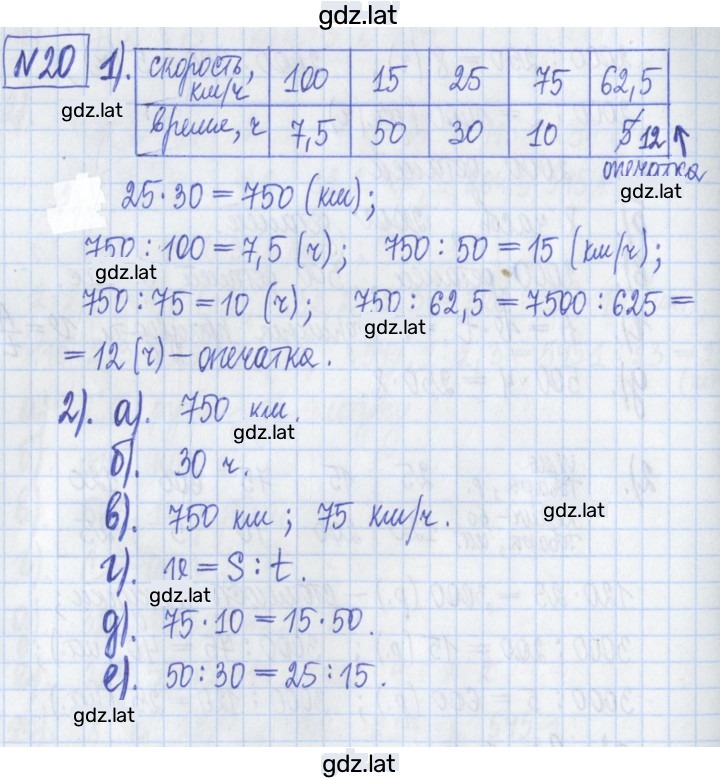 gdz.lat
№20 1). скорость, км/ч 100 15 25 75 62,5
gdz.lat
время, ч 7,5 50 30 10 5 12 ↑
опечатка
25·30=750 (км);
gdz.lat
750:100=7,5 (ч); 750:50=15 (км/ч);
gdz.lat
750:75=10 (ч); 750:62,5=7500:625=
gdz.lat
=12 (ч)-опечатка.
2). а). 750 км.
gdz.lat
б). 30 ч.
в). 750 км; 75 км/ч.
gdz.lat
г). v=S:t.
gdz.lat
д). 75·10=15·50.
е). 50:30=25:15.
gdz.lat
gdz.lat